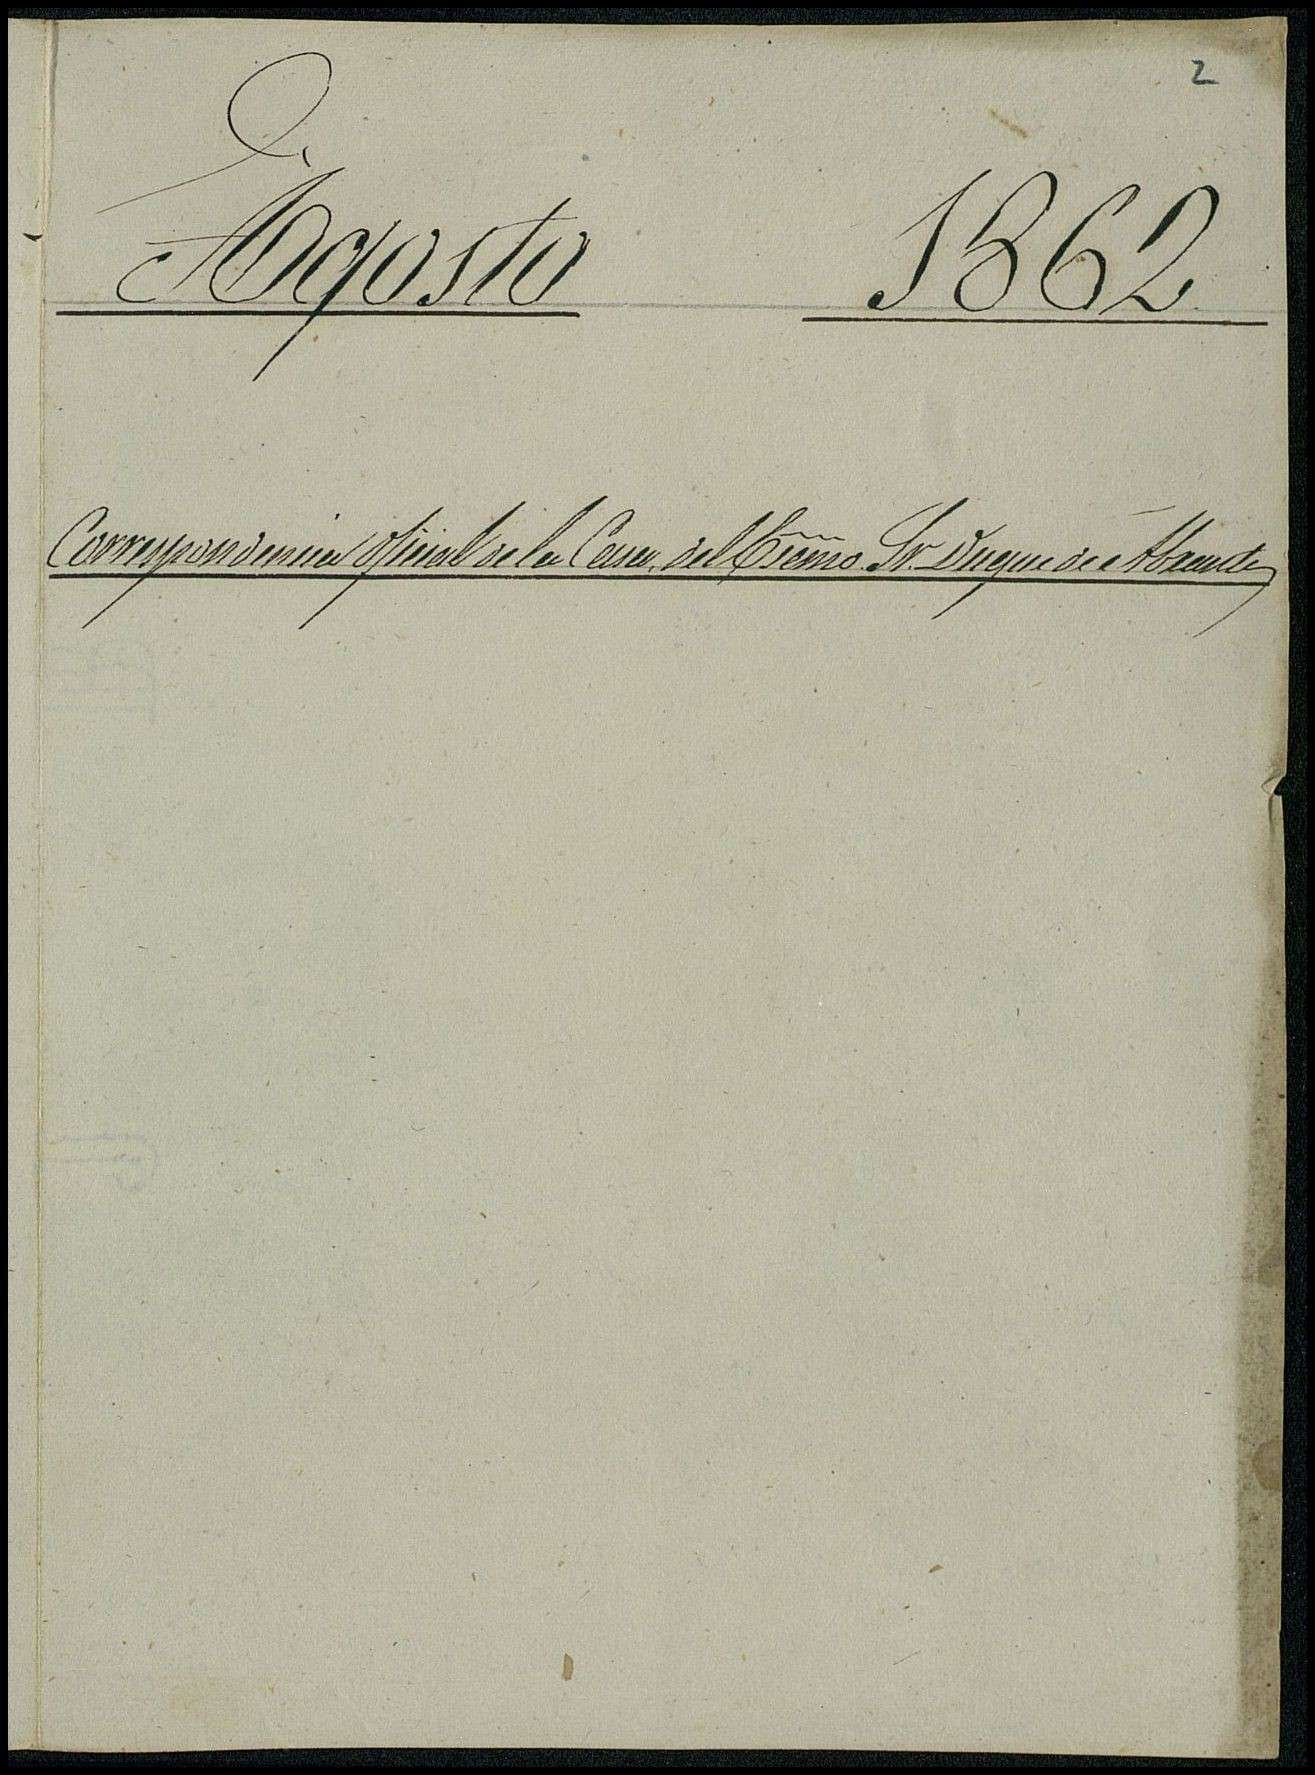 2
Agosto 1862
Correspondencia oficial de la Casa del Ecsmo. Sr. Duque de Abrantes